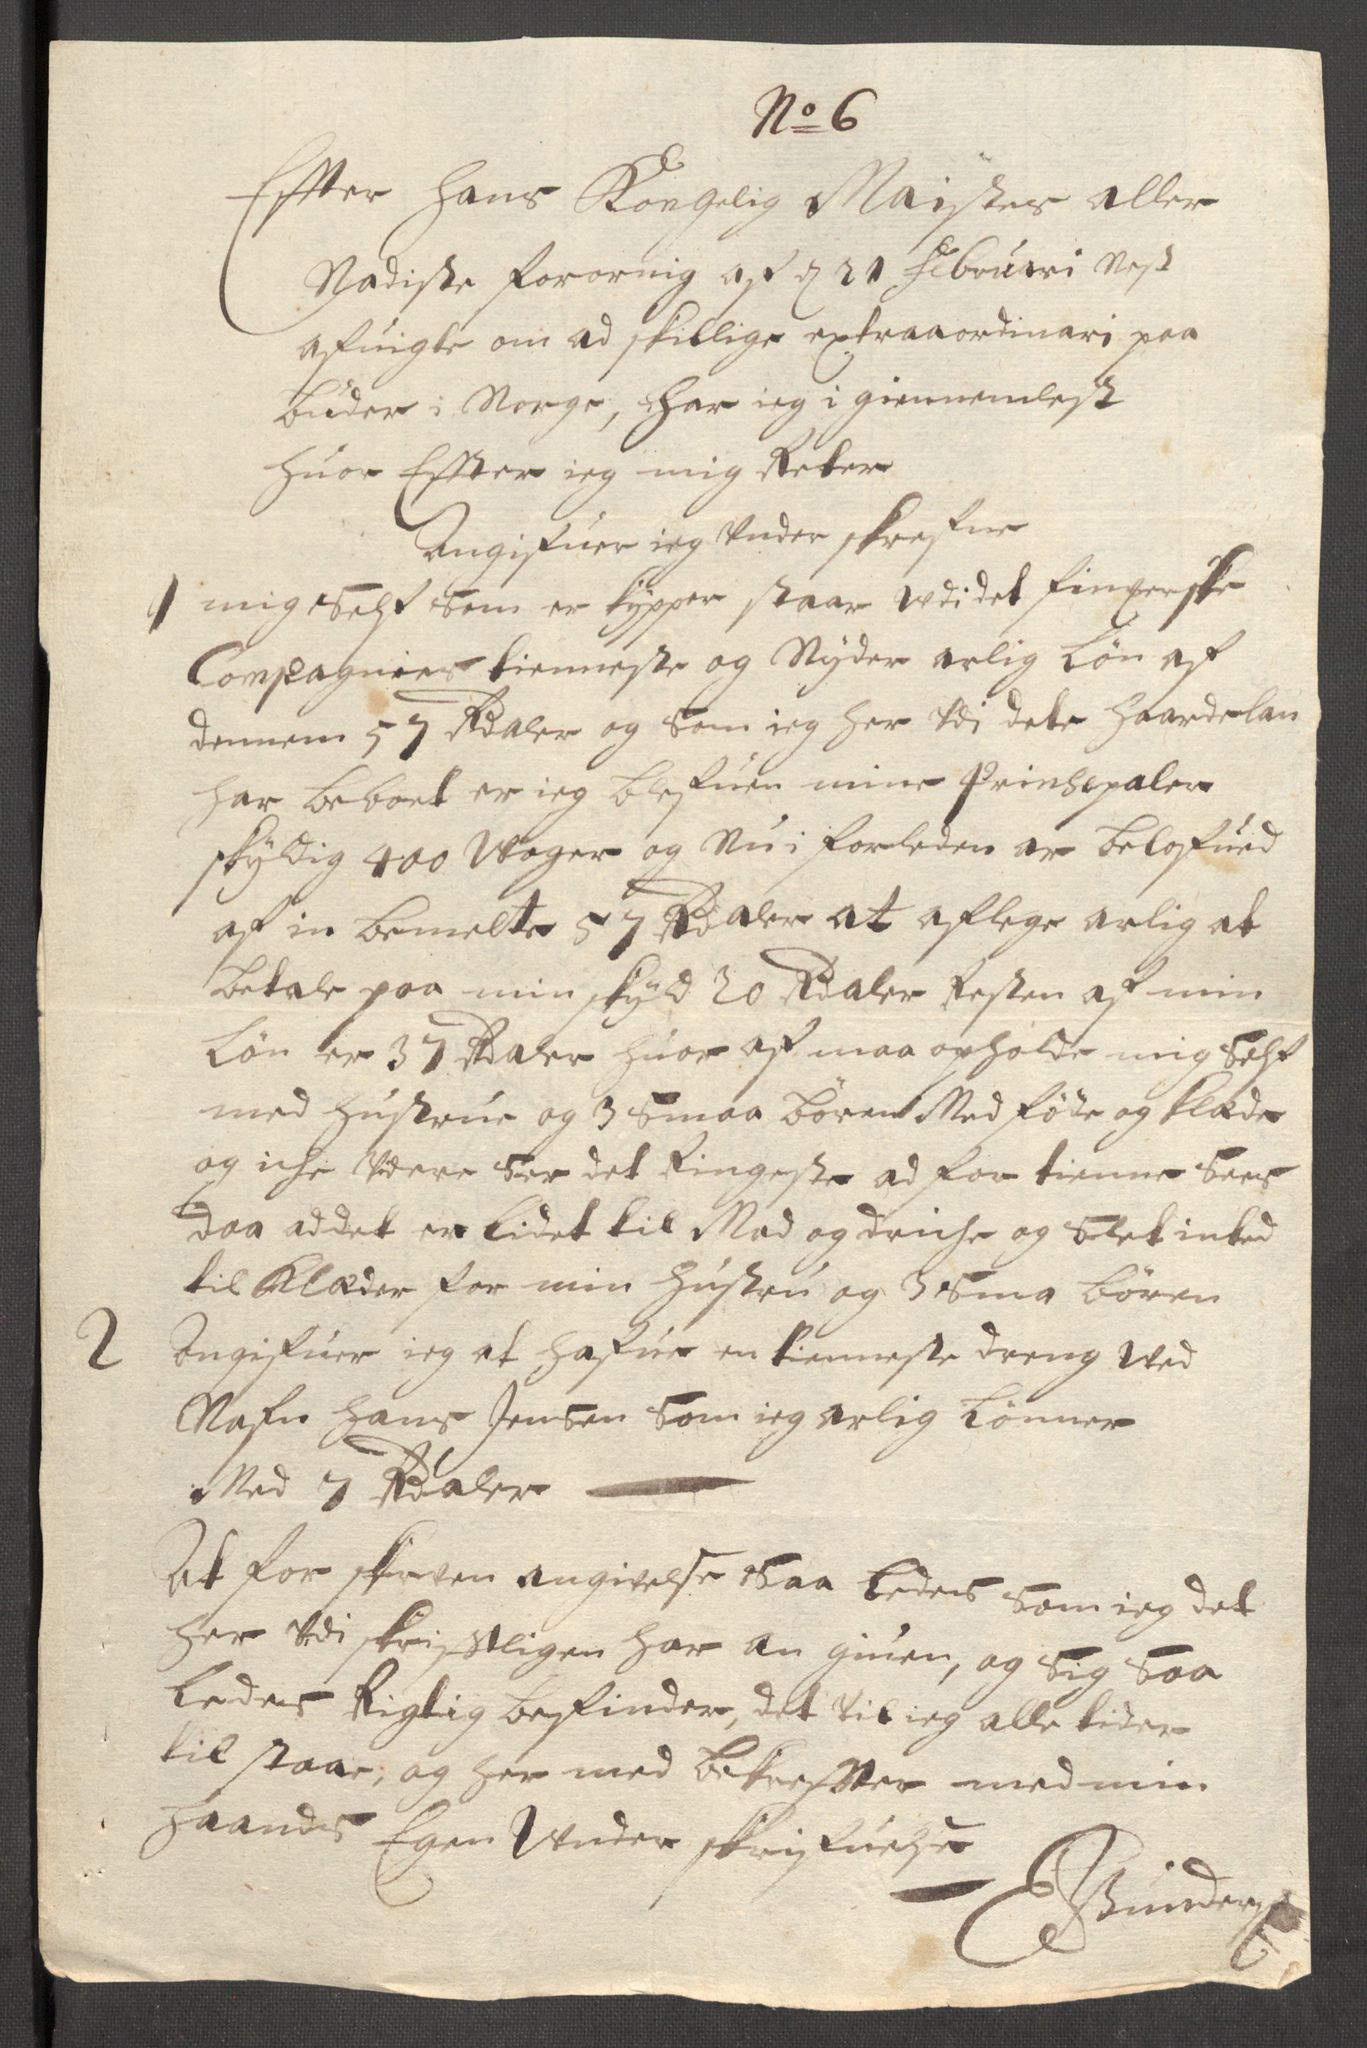 No 6
Effter Hans Kongelig Maiisters aller
Nadiste forornig af d 21 Februari Nest
afuigte om ad skillige extraaordinari paa
buder i Norge, Har ieg i giennemlest
huor Effter ieg mig Reter
Angifuer ieg Under skrefne
1 mig Self Som er kypper staar udi det finmerske
Compagnies tienneste og Nyder arlig Løn af
dennem 57 Rdaler og Som ieg her Udi dete haarde lan
har beboet er ieg blefuen mine Prinsepaler
skyldig 400 Woger og Nu i forleden ar belofued
af in bemelte 57 Rdaler at aflege arlig at
betale paa min skyld 20 Rdaler Resten af min
Løn er 37 Rdaler huor af maa opholde mig Self
med hustrue og 3 Smaa børen Med føde og klæde
og iche Uære Ser det Ringeste ad for tienne Sees
daa ad det er lidet til Mad og driche og Slet inted
til Klæder for min Hustru og 3 Sma børen
2 Angifuer ieg at hafue en tienneste dreng Ved
Nafn Hans Jensen Som ieg arlig Lønner
Med 7 Rdaler
At for skreven angivelse Saa ledes Som ieg det
her Udi skrifftligen har an giuen, og Sig Saa
ledes Rigtig befinder, det Vil ieg alle tider
til staae, og her med bekreffter med min
haands Egen Under skrifuelse